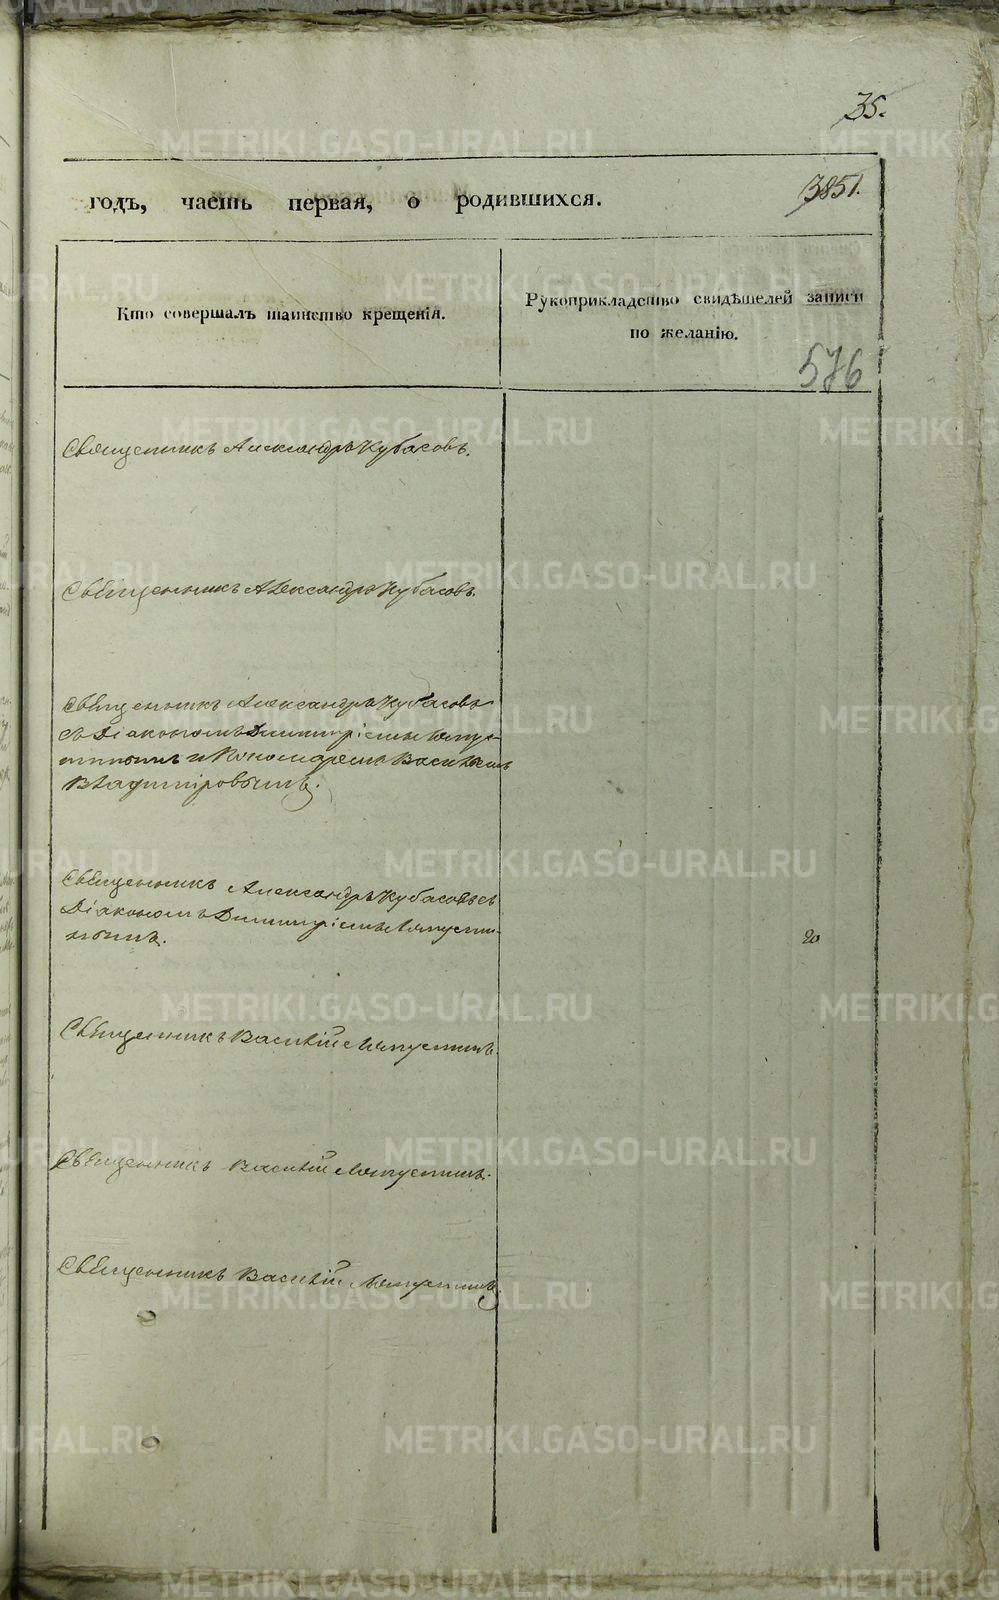 35.
годъ, часть первая, о родившихся.
3851.
Кто совершалъ таинство крещенія.
Рукоприкладство свидѣтелей записи
по желанію.
576
Священникъ Александръ Кубасовъ.
Священникъ Александръ Кубасовъ.
Священникъ Александръ Кубасовъ
съ Діакономъ Димитріемъ Ляпус-
тинымъ и Пономаремъ Васильемъ
Владиміровымъ.
Священникъ Александръ Кубасовъ съ
Діакономъ Димитріемъ Ляпусти-
нымъ.
20
Священникъ Василій Ляпустинъ.
Священникъ Василій Ляпустинъ.
Священникъ Василій Ляпустинъ.
METRIKI.GASO-URAL.RU